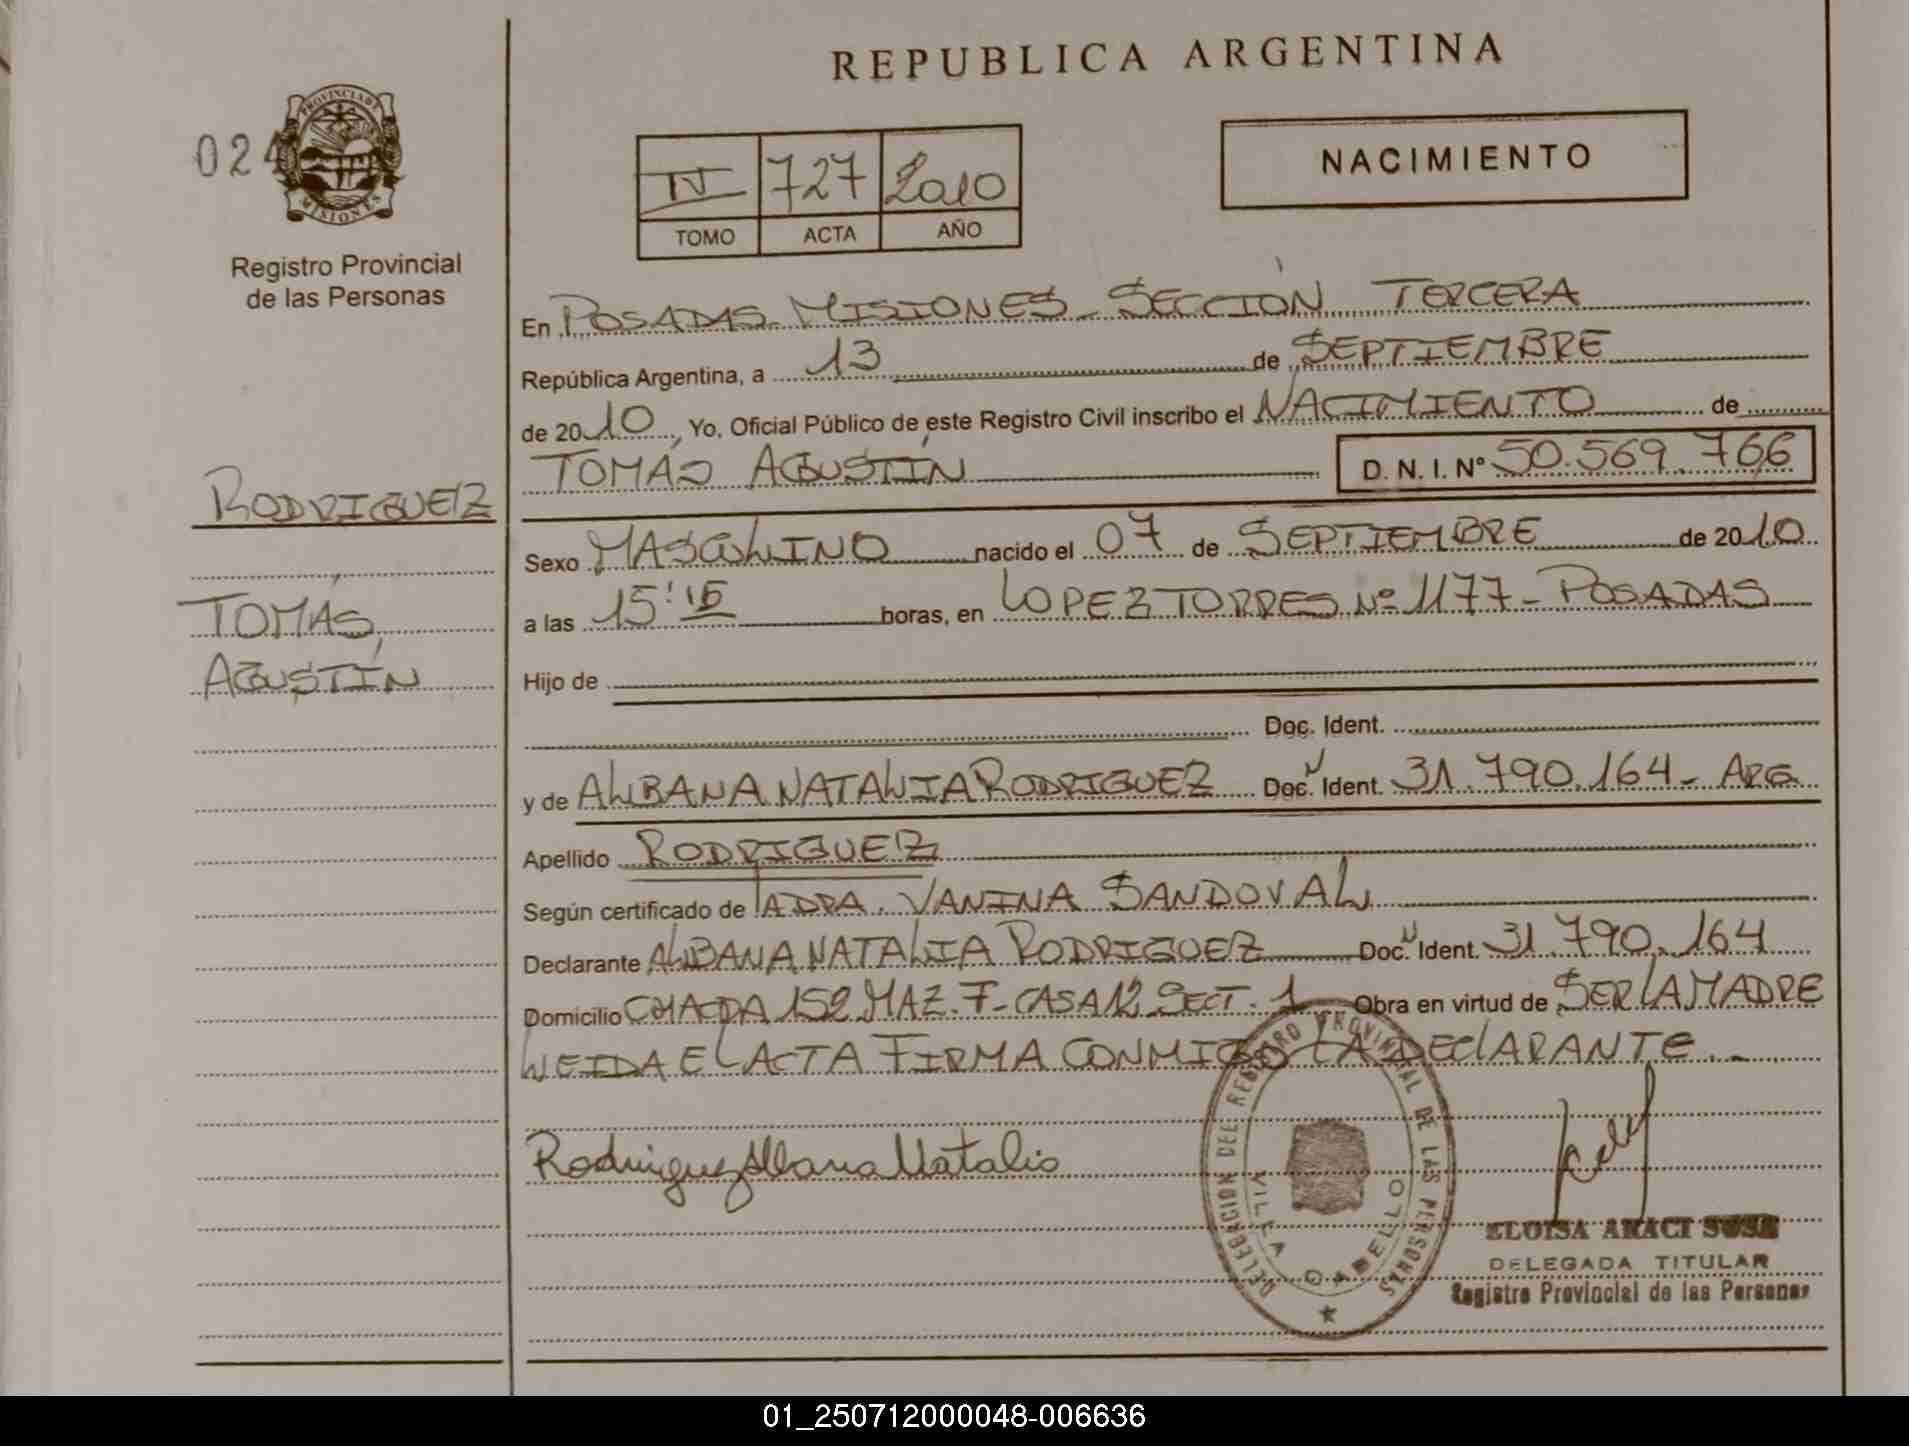 REPUBLICA ARGENTINA
PROVINCIA DE
MISIONES
Registro Provincial
de las Personas
IV 727 2010
TOMO ACTA AÑO
NACIMIENTO
En POSADAS MISIONES - SECCION TERCERA
República Argentina, a 13 de SEPTIEMBRE
de 2010, Yo, Oficial Público de este Registro Civil inscribo el NACIMIENTO de
TOMÁS AGUSTÍN D. N. I. Nº 50.569.766
RODRIGUEZ
TOMÁS
AGUSTÍN
Sexo MASCULINO nacido el 07 de SEPTIEMBRE de 2010
a las 15:15 horas, en LOPEZ TORRES Nº 1177 - POSADAS
Hijo de
Doc. Ident.
y de ALBANA NATALIA RODRIGUEZ Doc. Ident. 31.790.164 - ARG
Apellido RODRIGUEZ
Según certificado de LA DRA. VANINA SANDOVAL
Declarante ALBANA NATALIA RODRIGUEZ Doc. Ident. 31.790.164
Domicilio CHACRA 152 MAZ. F - CASA 12 SECT. 1 Obra en virtud de SER LA MADRE
LEIDA EL ACTA FIRMA CONMIGO LA DECLARANTE. -
Rodriguez Albana Natalia
DELEGACION DEL REGISTRO PROVINCIAL DE LAS PERSONAS
VILLA CABELLO
ELOISA ARACI SOSA
DELEGADA TITULAR
Registro Provincial de las Personas
01_250712000048-006636